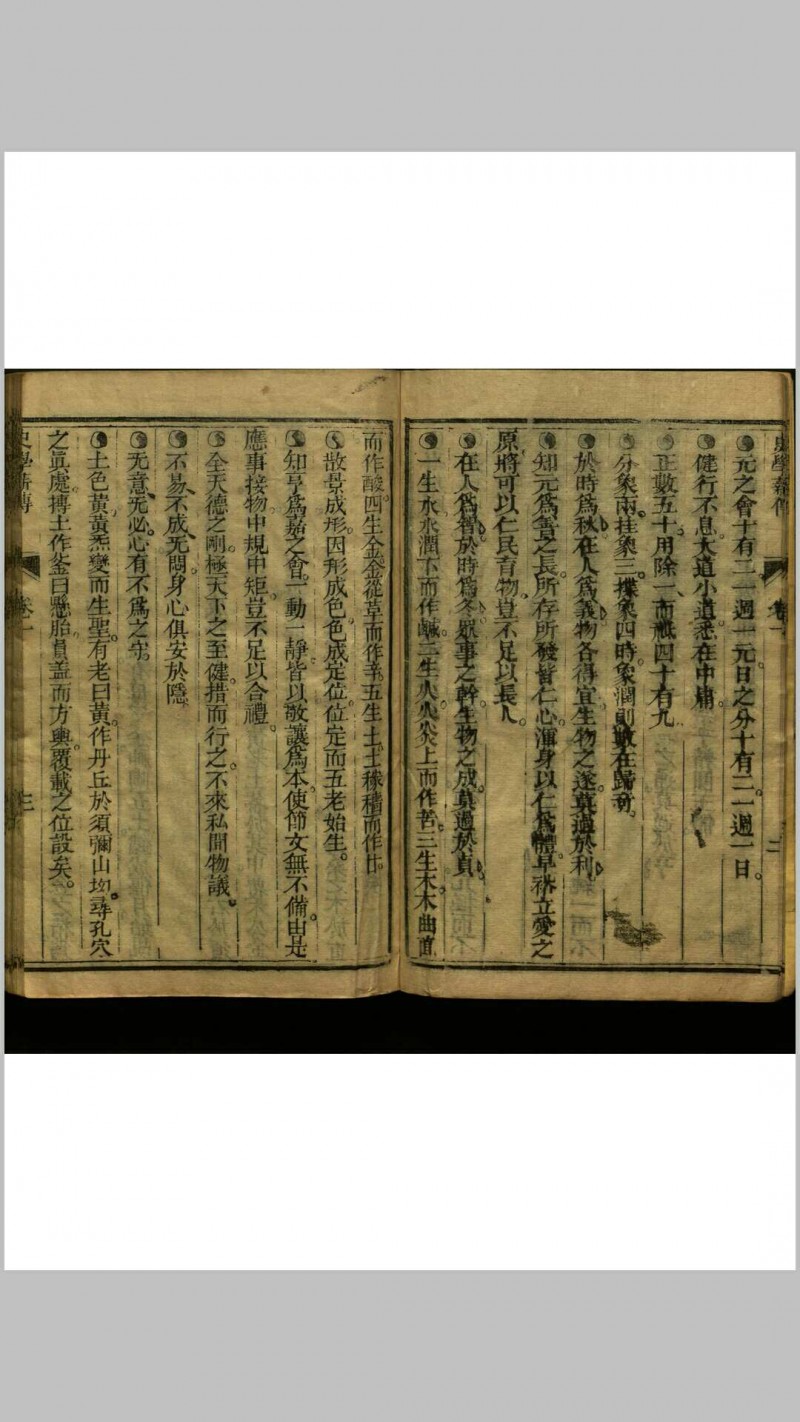 元之會十有二一週一元日之分十有二一週一日。
健行不息大道小道悉在中庸。
正數五十用除一而祗四十有九
分象兩掛象三揲象四時象潤則數在歸奇。
於時爲秋在人爲義物各得宜生物之遂莫過於利
知元爲善之長所存所發皆仁心渾身以仁爲體卓裕立愛之
原將可以仁民育物豈不足以長人
在人爲智於時爲冬眾事之幹生物之成莫過於貞
一生水水潤下而作鹹二生火火炎上而作苦三生木木曲直
三
而作酸四生金金從革而作辛五生土土稼穡而作甘。
散景成形因形成色色成定位位定而五老始生。
知亨爲嘉之會一動一靜皆以敬讓爲本使節文無不備由是
應事接物中規中矩豈不足以合禮。
全天德之剛極天下之至健措而行之不來私閒物議。
不易不成无悶身心俱安於隱
无意无必心有不爲之守。
土色黃黃炁變而生聖有老曰黃作丹丘於須彌山坳尋孔穴
之眞處摶土作釜曰懸胎員蓋而方輿覆載之位設矣。
卷一
三